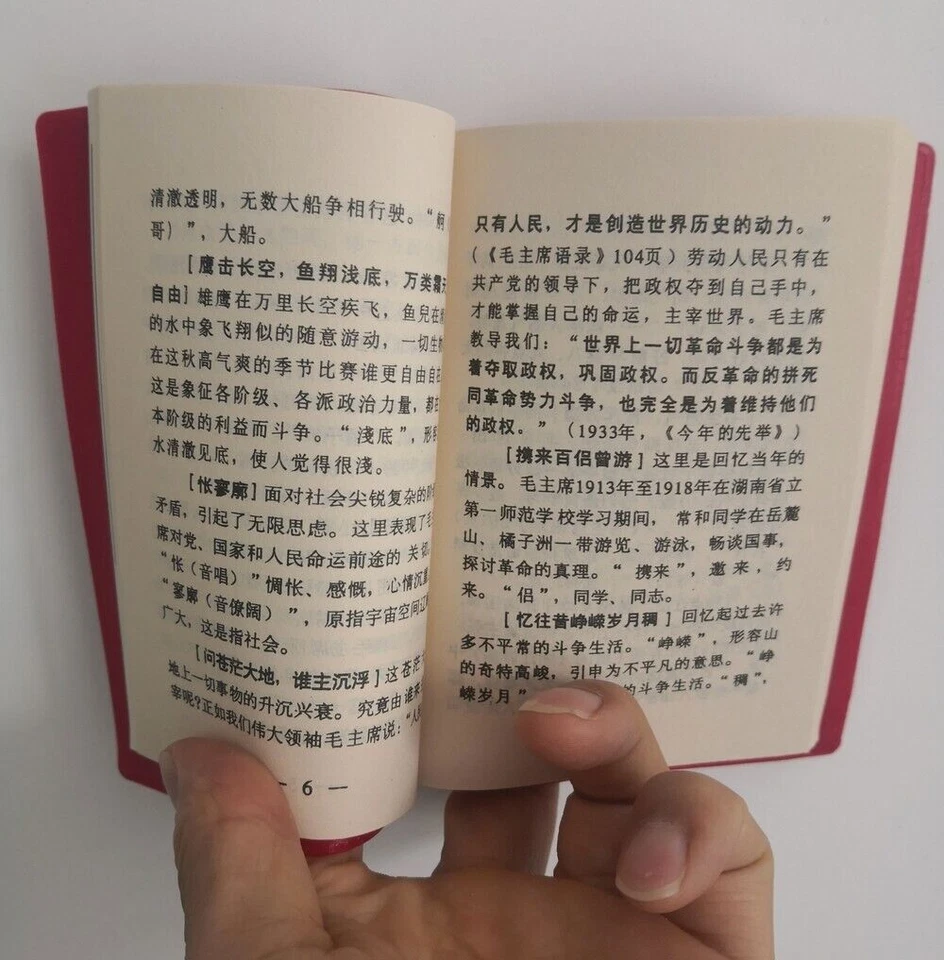 清澈透明，无数大船争相行驶。“舸
哥）”，大船。
[鹰击长空，鱼翔浅底，万类霜天
自由] 雄鹰在万里长空疾飞，鱼兒在
的水中象飞翔似的随意游动，一切生
在这秋高气爽的季节比赛谁更自由自在
这是象征各阶级、各派政治力量，都在
本阶级的利益而斗争。“淺底”，形
水清澈见底，使人觉得很淺。
[怅寥廓] 面对社会尖锐复杂的阶
矛盾，引起了无限思虑。这里表现了毛
席对党、国家和人民命运前途的 关切。
“怅（音唱）”惆怅、感慨，心情沉重
“寥廓（音僚阔）”，原指宇宙空间辽
广大，这是指社会。
[问苍茫大地，谁主沉浮] 这苍茫
地上一切事物的升沉兴衰。究竟由谁来
宰呢?正如我们伟大领袖毛主席说：“人
— 6 —
只有人民，才是创造世界历史的动力。”
(《毛主席语录》104页）劳动人民只有在
共产党的领导下，把政权夺到自己手中，
才能掌握自己的命运，主宰世界。毛主席
教导我们：“世界上一切革命斗争都是为
着夺取政权，巩固政权。而反革命的拼死
同革命势力斗争，也完全是为着维持他们
的政权。”（1933年，《今年的先举》）
[携来百侣曾游] 这里是回忆当年的
情景。毛主席1913年至1918年在湖南省立
第一师范学校学习期间，常和同学在岳麓
山、橘子洲一带游览、游泳，畅谈国事，
探讨革命的真理。“携来”，邀来，约
来。“侣”，同学、同志。
[忆往昔峥嵘岁月稠] 回忆起过去许
多不平常的斗争生活。“峥嵘”，形容山
的奇特高峻，引申为不平凡的意思。“峥
嵘岁月” 的斗争生活。“稠”，